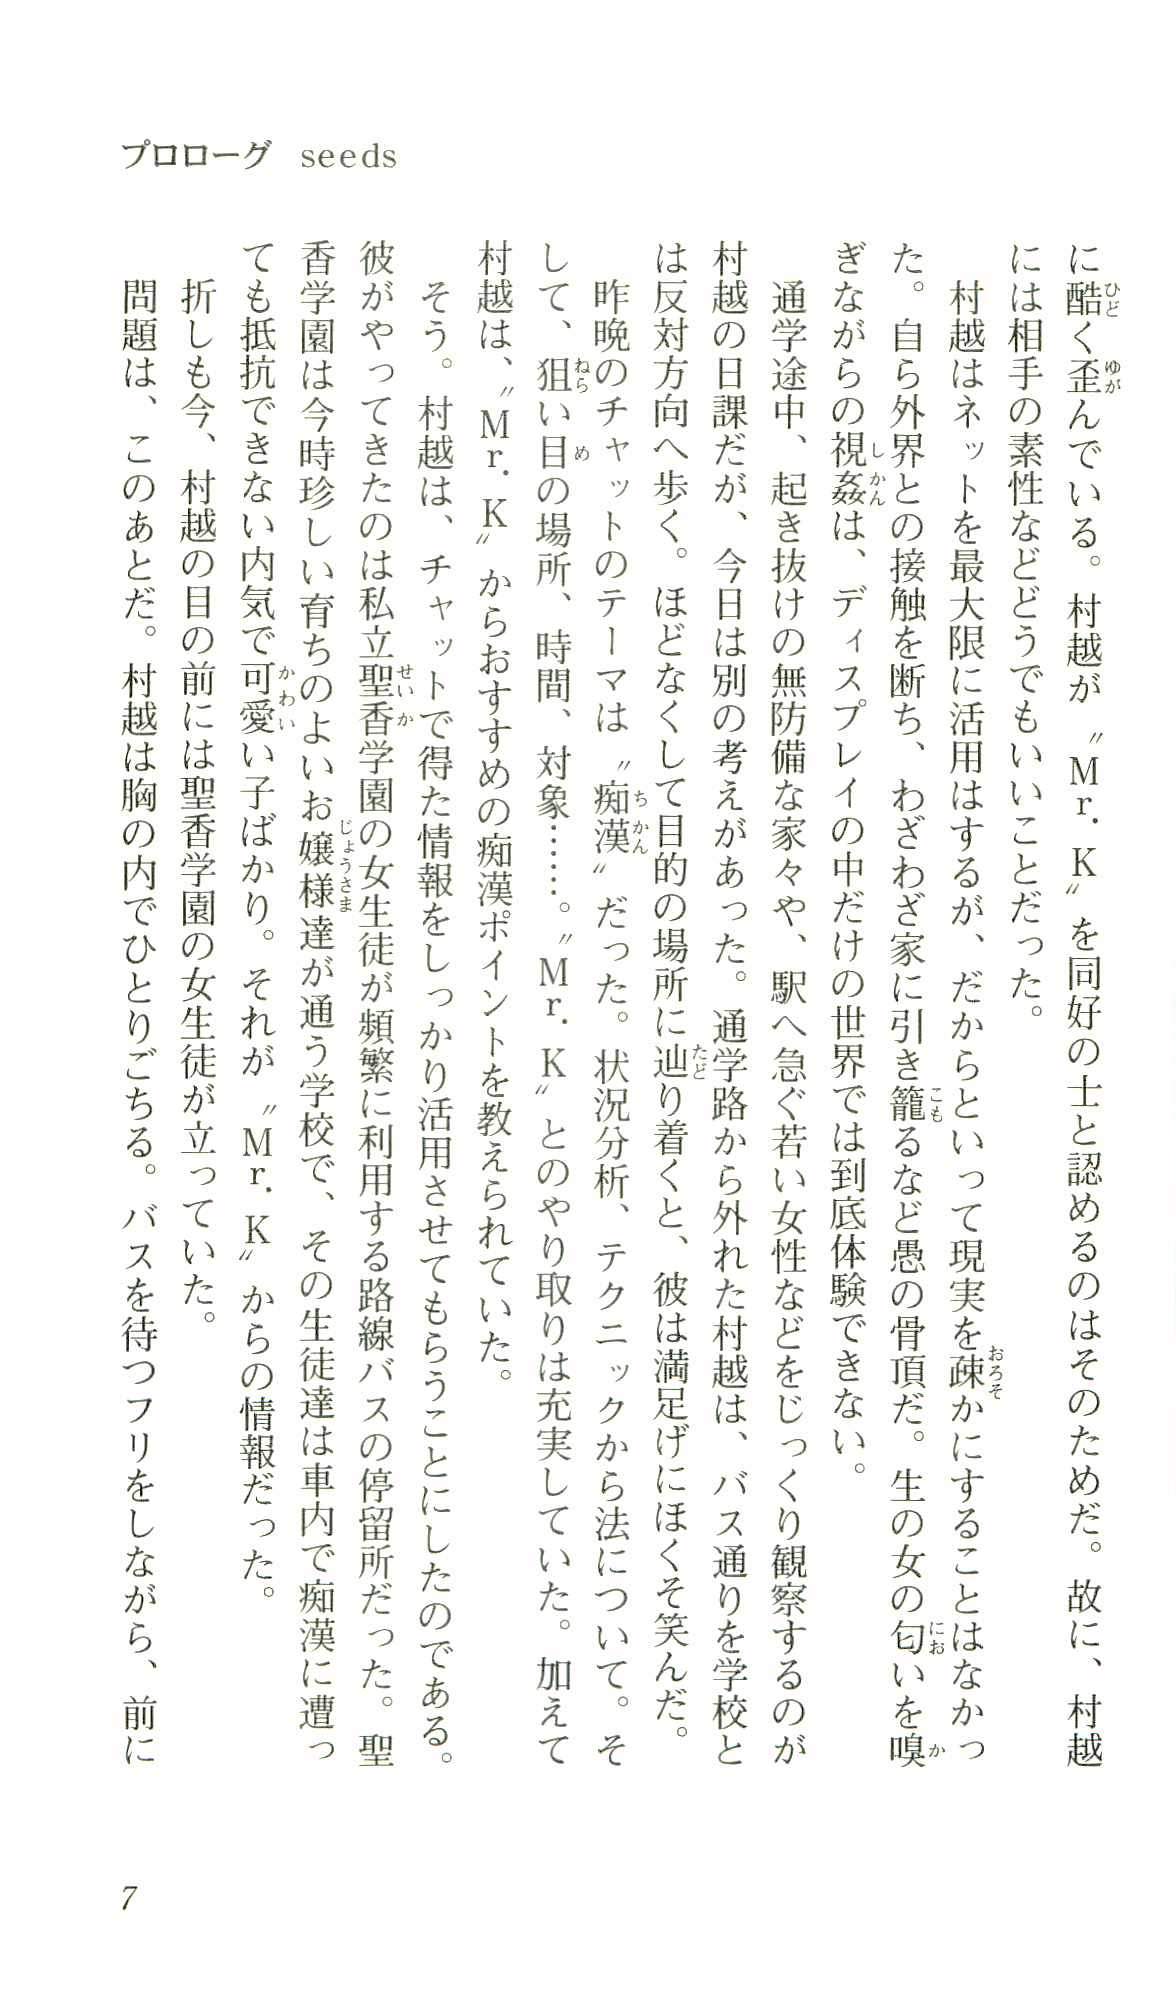 プロローグ seeds
に酷く歪んでいる。村越が〝Mr.K〟を同好の士と認めるのはそのためだ。故に、村越
には相手の素性などどうでもいいことだった。
村越はネットを最大限に活用はするが、だからといって現実を疎かにすることはなかっ
た。自ら外界との接触を断ち、わざわざ家に引き籠るなど愚の骨頂だ。生の女の匂いを嗅
ぎながらの視姦は、ディスプレイの中だけの世界では到底体験できない。
通学途中、起き抜けの無防備な家々や、駅へ急ぐ若い女性などをじっくり観察するのが
村越の日課だが、今日は別の考えがあった。通学路から外れた村越は、バス通りを学校と
は反対方向へ歩く。ほどなくして目的の場所に辿り着くと、彼は満足げにほくそ笑んだ。
昨晩のチャットのテーマは〝痴漢〟だった。状況分析、テクニックから法について。そ
して、狙い目の場所、時間、対象……。〝Mr.K〟とのやり取りは充実していた。加えて
村越は、〝Mr.K〟からおすすめの痴漢ポイントを教えられていた。
そう。村越は、チャットで得た情報をしっかり活用させてもらうことにしたのである。
彼がやってきたのは私立聖香学園の女生徒が頻繁に利用する路線バスの停留所だった。聖
香学園は今時珍しい育ちのよいお嬢様達が通う学校で、その生徒達は車内で痴漢に遭っ
ても抵抗できない内気で可愛い子ばかり。それが〝Mr.K〟からの情報だった。
折しも今、村越の目の前には聖香学園の女生徒が立っていた。
問題は、このあとだ。村越は胸の内でひとりごちる。バスを待つフリをしながら、前に
7